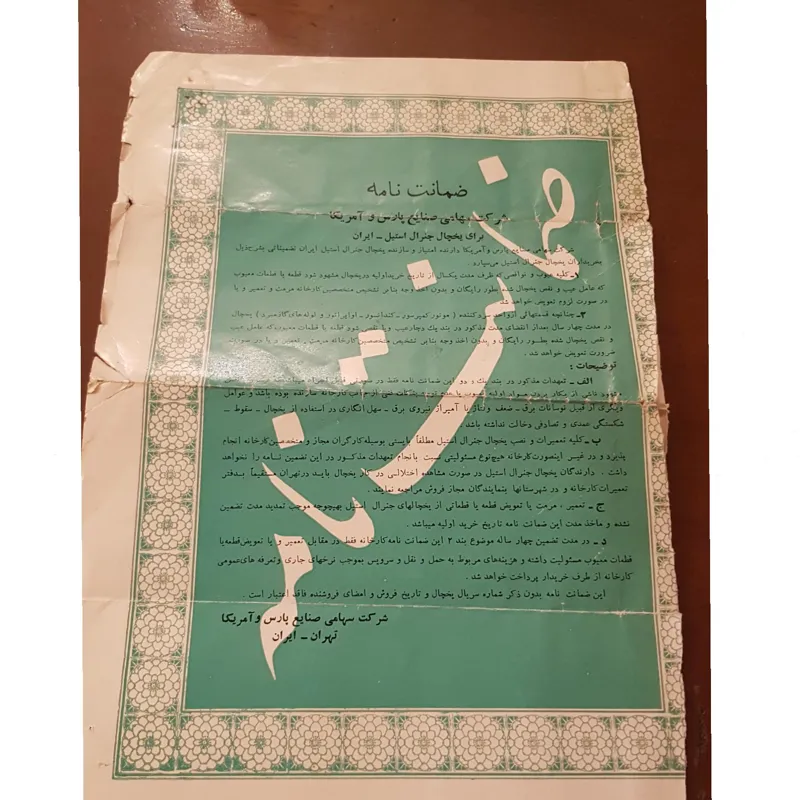 ضمانت نامه
شرکت سهامی صنایع پارس و آمریکا
برای یخچال جنرال استیل - ایران
شرکت سهامی صنایع پارس و آمریکا دارنده امتیاز و سازنده یخچال جنرال استیل ایران تضمیناتی بشرح ذیل
بخریداران یخچال جنرال استیل می‌سپارد .
۱- کلیه عیوب و نواقصی که ظرف مدت یکسال از تاریخ خرید اولیه در یخچال مشهود شود قطعه یا قطعات معیوب
که عامل عیب و نقص یخچال شده بطور رایگان و بدون اخذ وجه بنا بر تشخیص متخصصین کارخانه مرمت و تعمیر و یا
در صورت لزوم تعویض خواهد شد
۲- چنانچه قسمتهائی از واحد سردکننده ( موتور کمپرسور - کندانسور - اواپراتور و لوله‌های گاز مبرد ) یخچال
در مدت چهار سال بعد از انقضای مدت مذکور در بند یک دچار عیب و یا نقص شود قطعه یا قطعات معیوب که عامل عیب
و نقص یخچال شده بطور رایگان و بدون اخذ وجه بنا بر تشخیص متخصصین کارخانه مرمت و تعمیر و یا در صورت
ضرورت تعویض خواهد شد .
توضیحات :
الف - تعهدات مذکور در بند یک و دو این ضمانت نامه فقط در صورتی قابل اجراء
ناشی از بکار بردن مواد اولیه از طرف کارخانه سازنده بوده باشد و عوامل
دیگری از قبیل نوسانات برق - ضعف ولتاژ یا آمپراژ نیروی برق - سهل انگاری در استفاده از یخچال - سقوط -
شکستگی عمدی و تصادفی دخالت نداشته باشد .
ب - کلیه تعمیرات و نصب یخچال جنرال استیل مطلقاً بایستی بوسیله کارگران مجاز و متخصصین کارخانه انجام
پذیرد و در غیر اینصورت کارخانه هیچ نوع مسئولیتی نسبت بانجام تعهدات مذکور در این تضمین نامه را نخواهد
داشت . دارندگان یخچال جنرال استیل در صورت مشاهده اختلالی در کار یخچال باید در تهران مستقیماً بدفتر
تعمیرات کارخانه و در شهرستانها بنمایندگان مجاز فروش مراجعه نمایند .
ج - تعمیر ، مرمت یا تعویض قطعه یا قطعاتی از یخچالهای جنرال استیل بهیچوجه موجب تمدید مدت تضمین
نشده و ماخذ مدت این ضمانت نامه تاریخ خرید اولیه میباشد .
د - در مدت تضمین چهار ساله موضوع بند ۲ این ضمانت نامه کارخانه فقط در مقابل تعمیر و یا تعویض قطعه یا
قطعات معیوب مسئولیت داشته و هزینه‌های مربوط به حمل و نقل و سرویس بموجب نرخهای جاری و تعرفه های عمومی
کارخانه از طرف خریدار پرداخت خواهد شد .
این ضمانت نامه بدون ذکر شماره سریال یخچال و تاریخ فروش و امضای فروشنده فاقد اعتبار است .
شرکت سهامی صنایع پارس و آمریکا
تهران - ایران
ضمانت نامه